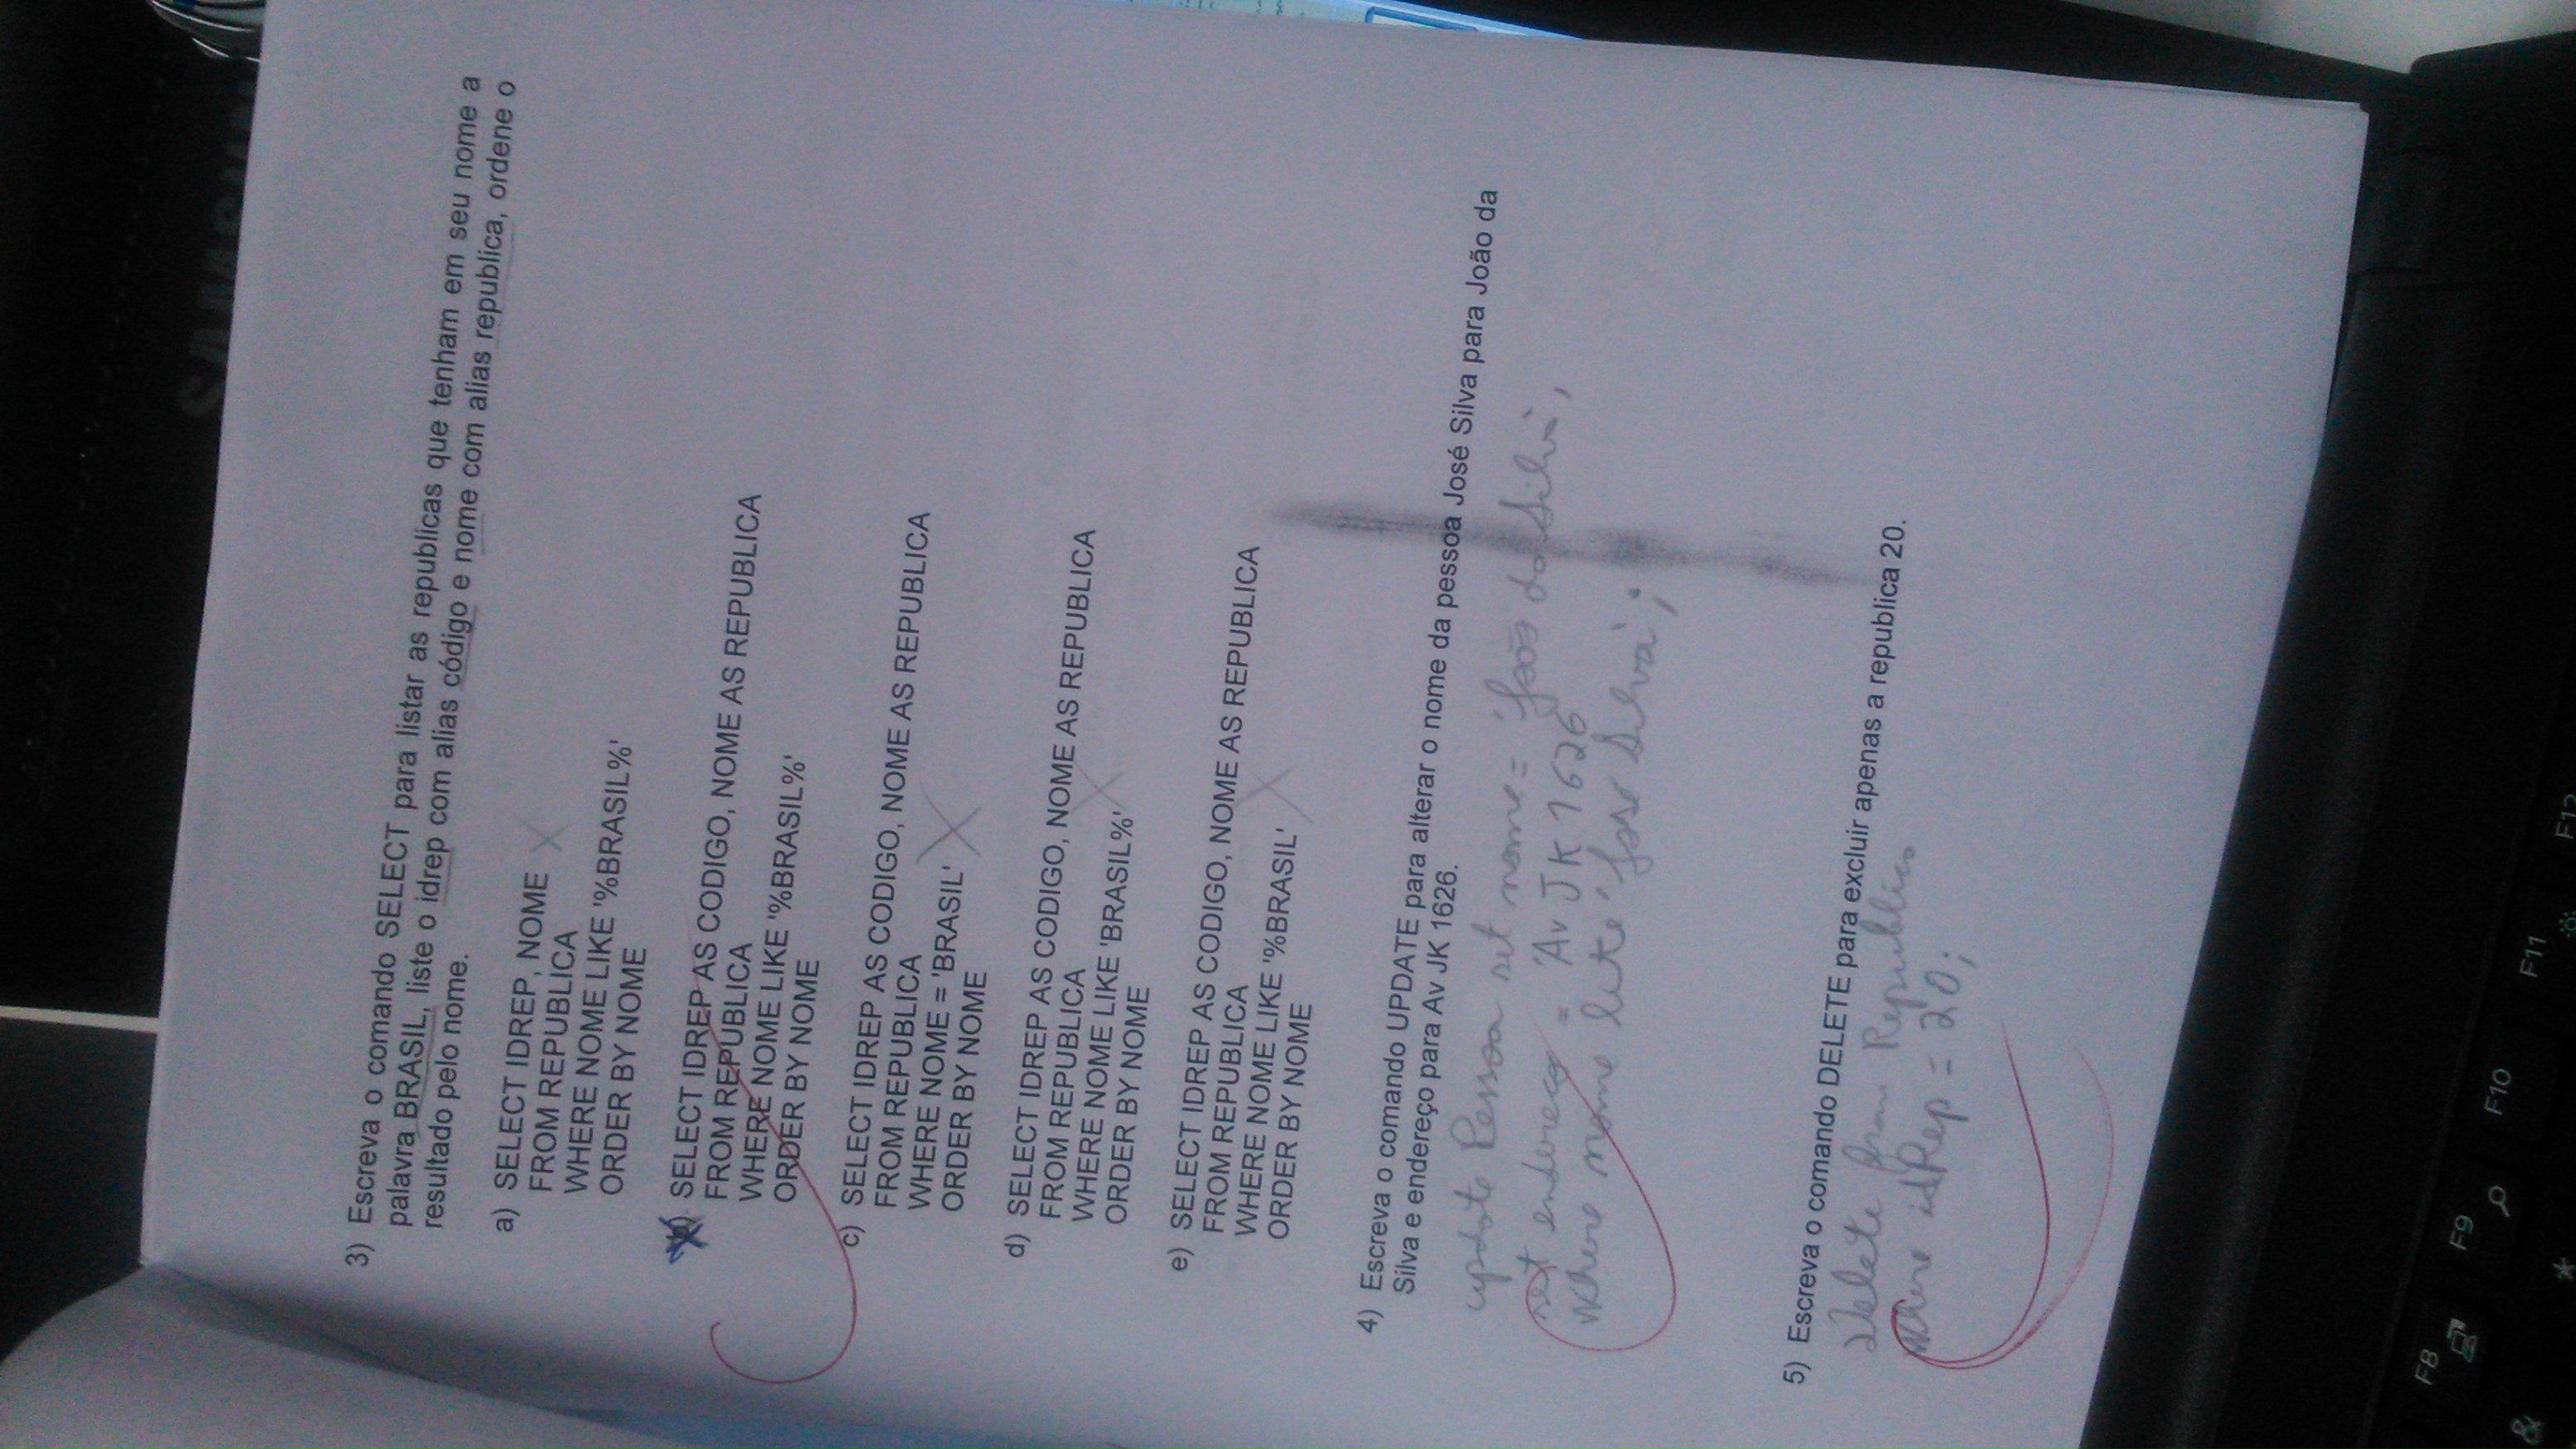 SAMSUN
3) Escreva o comando SELECT para listar as republicas que tenham em seu nome a
palavra BRASIL, liste o idrep com alias código e nome com alias republica, ordene o
resultado pelo nome.
a) SELECT IDREP, NOME
FROM REPUBLICA
WHERE NOME LIKE '%BRASIL%'
ORDER BY NOME
SELECT IDREP AS CODIGO, NOME AS REPUBLICA
FROM REPUBLICA
WHERE NOME LIKE '%BRASIL%'
ORDER BY NOME
c) SELECT IDREP AS CODIGO, NOME AS REPUBLICA
FROM REPUBLICA
WHERE NOME = 'BRASIL'
ORDER BY NOME
d) SELECT IDREP AS CODIGO, NOME AS REPUBLICA
FROM REPUBLICA
WHERE NOME LIKE 'BRASIL%'
ORDER BY NOME
e) SELECT IDREP AS CODIGO, NOME AS REPUBLICA
FROM REPUBLICA
WHERE NOME LIKE '%BRASIL'
ORDER BY NOME
4) Escreva o comando UPDATE para alterar o nome da pessoa José Silva para João da
Silva e endereço para Av JK 1626.
update Pessoa set nome = 'João da Silva',
set endereço = 'Av JK 1626
where nome like 'José Silva';
5) Escreva o comando DELETE para excluir apenas a republica 20.
Delete from Republica
where idRep = 20;
F8
F9
F10
F11
F12
&
*